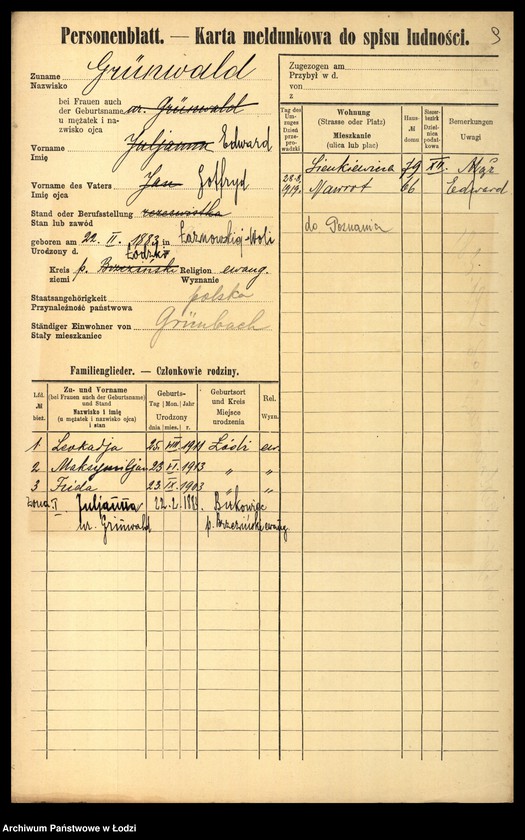 Personenblatt. — Karta meldunkowa do spisu ludności.
9
Zuname Grünwald
Nazwisko
bei Frauen auch
der Geburtsname ur. Grünwald
u mężatek i nazwisko ojca
Vorname Juljanna Edward
Imię
Vorname des Vaters Jan Gotfryd
Imię ojca
Stand oder Berufsstellung
Stan lub zawód
geboren am 22. II. 1883 in Łaznowskiej-Woli
Urodzony d. Łódzki
Kreis p. Brzeziński Religion ewang.
ziemi Wyznanie
Staatsangehörigkeit polska
Przynależność państwowa
Ständiger Einwohner von Grünbach
Stały mieszkaniec
Zugezogen am
Przybył w d.
von
z
Tag des Umzuges
Dzień przeprowadzki
Wohnung
(Strasse oder Platz)
Mieszkanie
(ulica lub plac)
Haus-
№
domu
Steuerbezirk
Dzielnica podatkowa
Bemerkungen
Uwagi
Sienkiewicza 79 XII. Mąż
28.8. 1919. Nawrot 66 Edward
do Poznania
Familienglieder. — Członkowie rodziny.
Lfd.
№
bież.
Zu- und Vorname
(bei Frauen auch der Geburtsname)
und Stand
Nazwisko i imię
(u mężatek i nazwisko ojca)
i stan
Geburts-
Tag Mon. Jahr
Urodzony
dnia mies. r.
Geburtsort
und Kreis
Miejsce
urodzenia
Rel.
Wyzn.
1 Leokadja 25. VIII 1911 Łódź ew.
2 Maksymiljan 23 VI. 1913 „ „
3 Frida 23. IX. 1903 „ „
Żona I Juljanna 22. 2. 1883. Bukowiec
ur. Grünwald p. Brzeziński ewang
Archiwum Państwowe w Łodzi